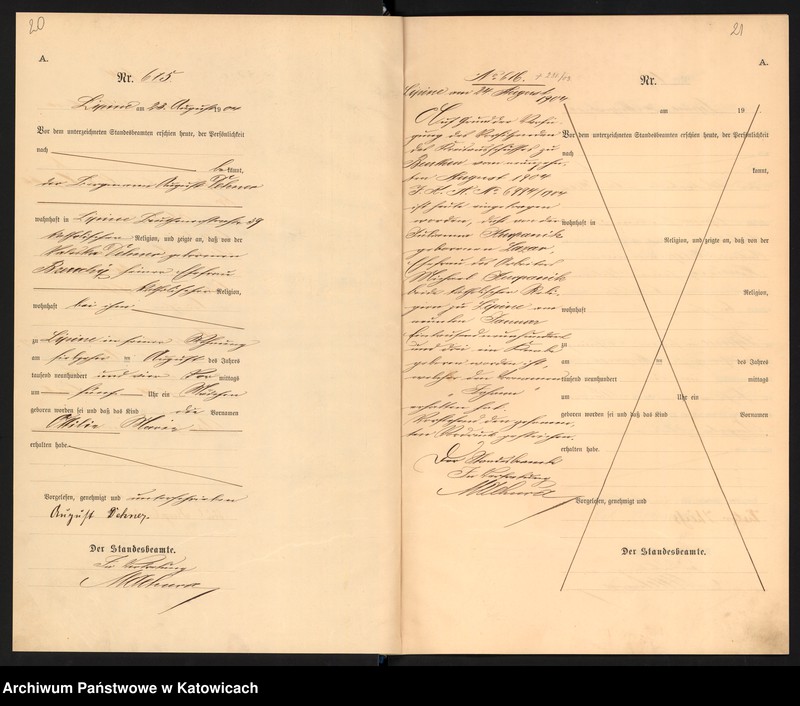 20
A.
Nr. 615.
Lipine am 22. August 1904
Vor dem unterzeichneten Standesbeamten erschien heute, der Persönlichkeit
nach bekannt,
der Bergmann August
wohnhaft in Lipine 29
katholischer Religion, und zeigte an, daß von der
geborenen
seiner Ehefrau
katholischer Religion,
wohnhaft bei ihm
zu Lipine in seiner Wohnung
am August des Jahres
tausend neunhundert und vier Vor mittags
um fünf Uhr ein Mädchen
geboren worden sei und daß das Kind die Vornamen
Ottilie Marie
erhalten habe.
Vorgelesen, genehmigt und unterschrieben
August
Der Standesbeamte.
In Vertretung
21
A.
No 616.
Lipine am 24 August
1904
Nr.
am 19
Auf Grund der Verfü-
gung des Vorsitzenden
des Kreisausschusses zu
Beuthen vom
ten August 1904
ist heute eingetragen
worden, daß von der
geborenen
Ehefrau des Arbeiters
Michael
beide katholischer Reli-
gion zu Lipine am
neunten Januar
Eintausend neunhundert
und drei ein Knabe
geboren worden ist,
welcher den Vornamen
erhalten hat.
Vorstehen den gesamm-
ten Vordruck gestrichen.
Der Standesbeamte
In Vertretung
Vor dem unterzeichneten Standesbeamten erschien heute, der Persönlichkeit
nach kannt,
wohnhaft in
Religion, und zeigte an, daß von der
Religion,
wohnhaft
zu
am des Jahres
tausend neunhundert mittags
um Uhr ein
geboren worden sei und daß das Kind Vornamen
erhalten habe.
Vorgelesen, genehmigt und
Der Standesbeamte.
Archiwum Państwowe w Katowicach